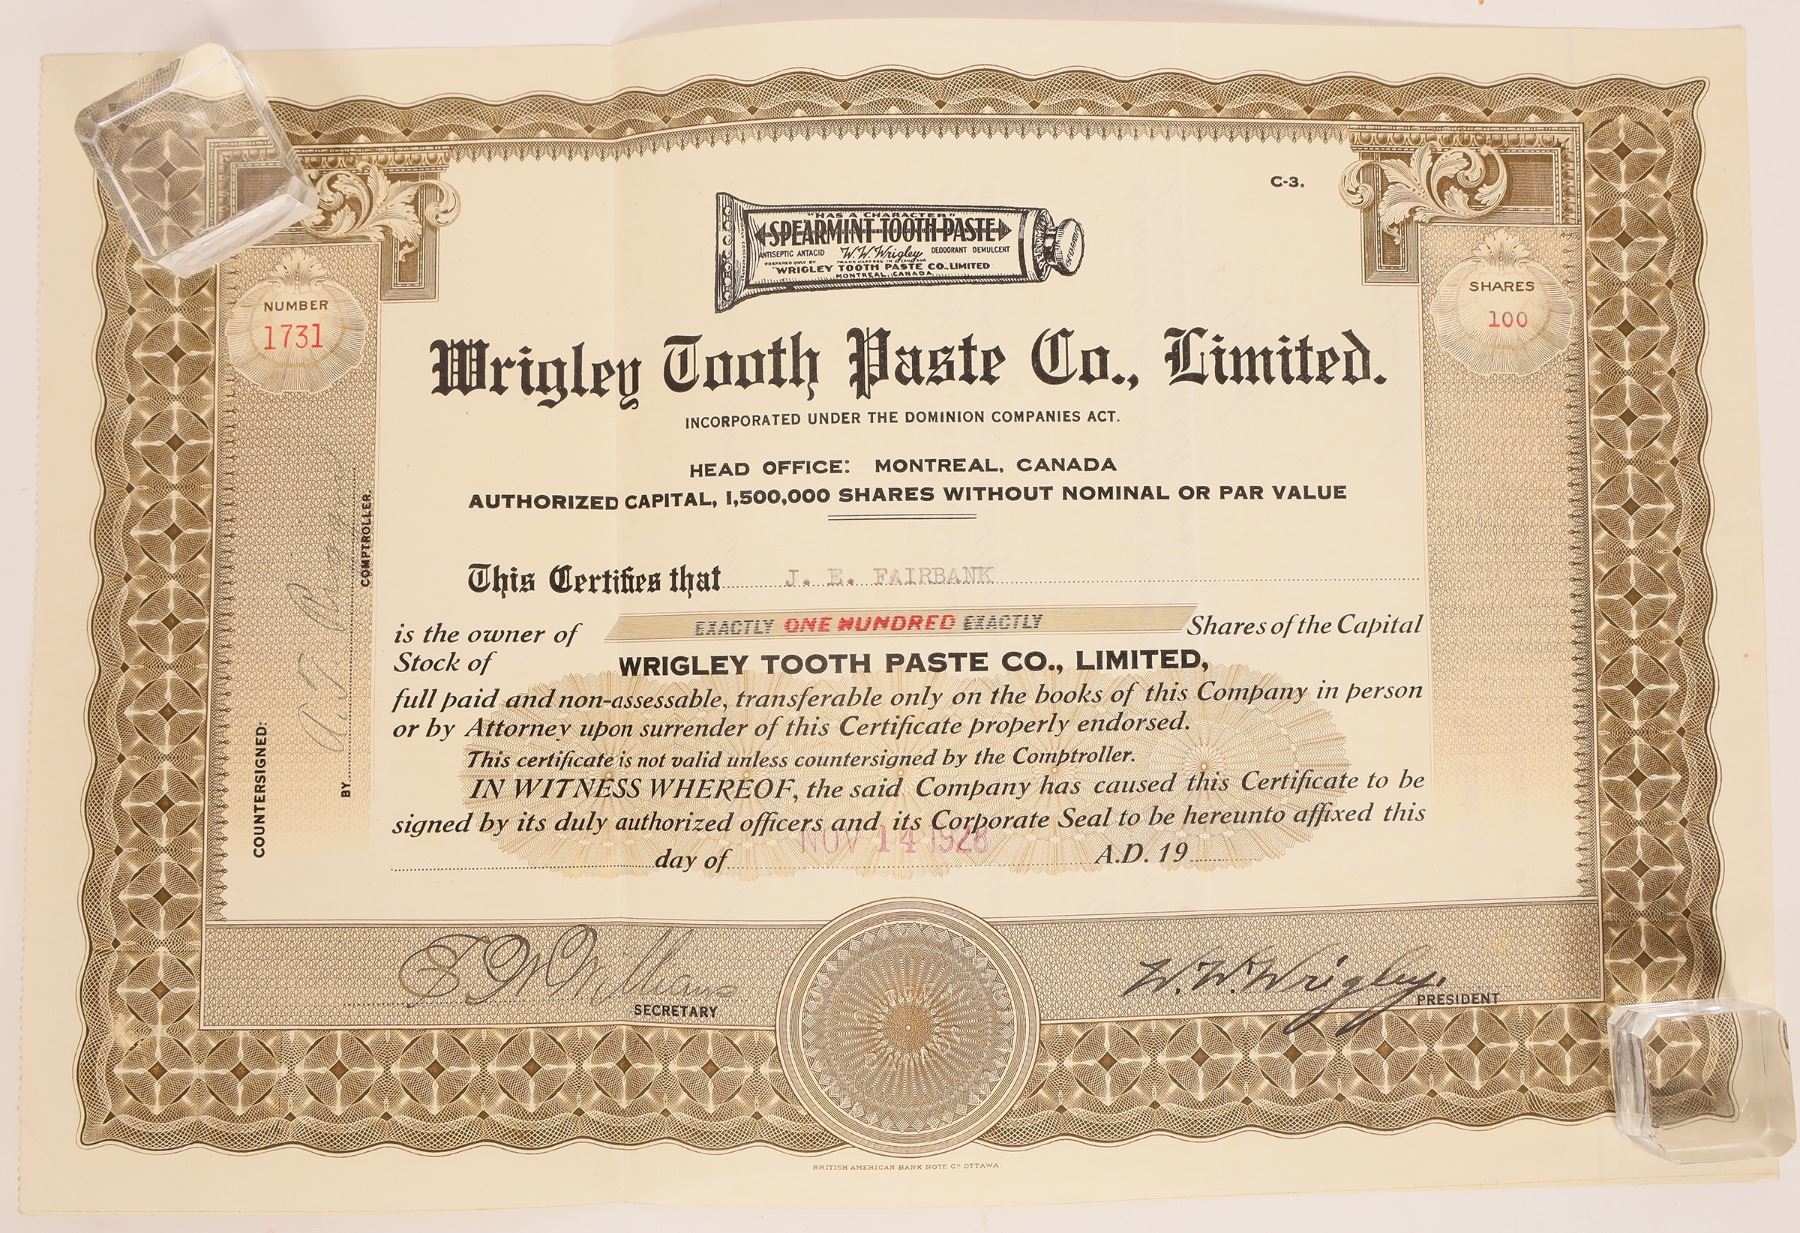 C-3.
"HAS A CHARACTER"
SPEARMINT TOOTH PASTE
ANTISEPTIC ANTACID W.W. Wrigley DEODORANT DEMULCENT
PREPARED ONLY BY
WRIGLEY TOOTH PASTE CO., LIMITED
MONTREAL, CANADA
NUMBER
1731
SHARES
100
Wrigley Tooth Paste Co., Limited.
INCORPORATED UNDER THE DOMINION COMPANIES ACT.
HEAD OFFICE: MONTREAL, CANADA
AUTHORIZED CAPITAL, 1,500,000 SHARES WITHOUT NOMINAL OR PAR VALUE
This Certifies that J. E. FAIRBANK
is the owner of EXACTLY ONE HUNDRED EXACTLY Shares of the Capital
Stock of WRIGLEY TOOTH PASTE CO., LIMITED,
full paid and non-assessable, transferable only on the books of this Company in person
or by Attorney upon surrender of this Certificate properly endorsed.
This certificate is not valid unless countersigned by the Comptroller.
IN WITNESS WHEREOF, the said Company has caused this Certificate to be
signed by its duly authorized officers and its Corporate Seal to be hereunto affixed this
day of NOV 14 1928 A.D. 19
COUNTERSIGNED:
BY
COMPTROLLER.
SECRETARY
W. W. Wrigley.
PRESIDENT
BRITISH AMERICAN BANK NOTE CO OTTAWA.